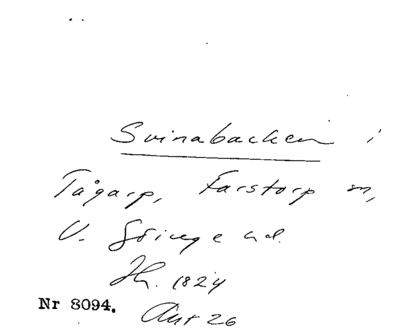 Svinabacken i
Tågarp, Farstorp sn,
V. Göinge hd.
Jh. 1824
Nr 8094. Akt 26